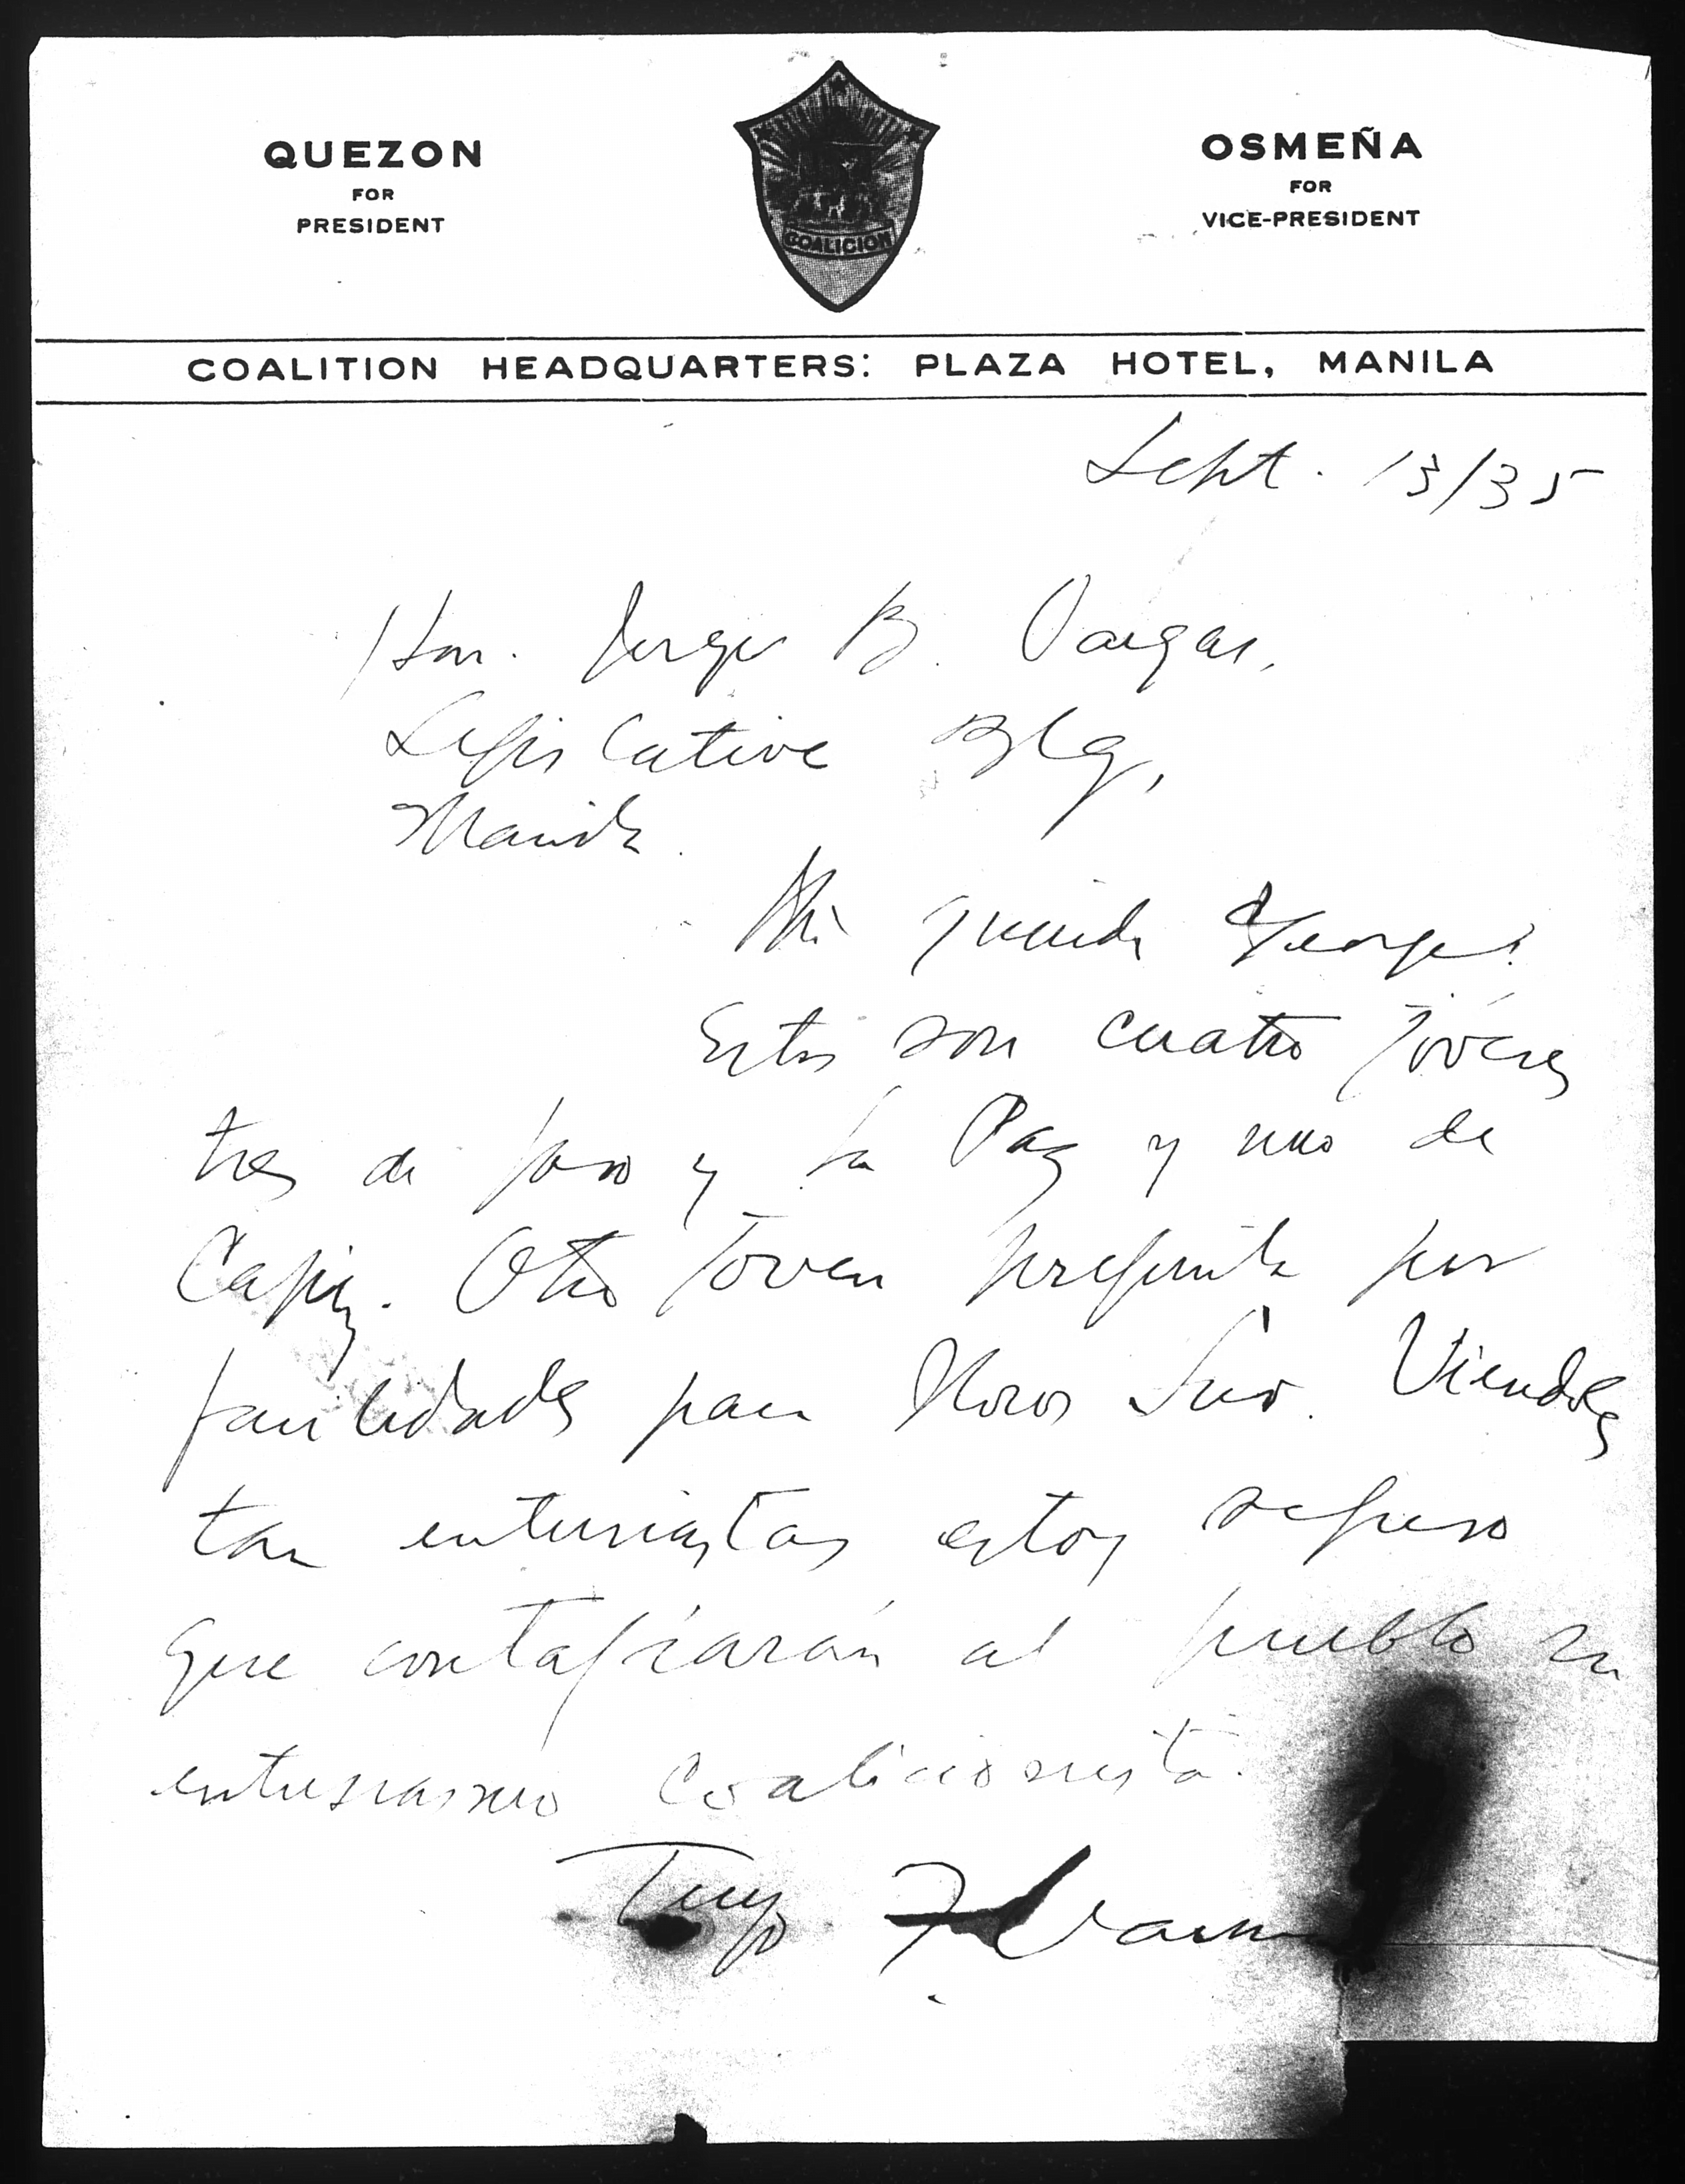 QUEZON
FOR
PRESIDENT
COALICION
OSMEÑA
FOR
VICE-PRESIDENT
COALITION HEADQUARTERS: PLAZA HOTEL, MANILA
Sept. 13/35
Hon. Jorge B. Vargas,
Legislative Blg,
Manila.
Mi querido George:
Estos son cuatro jóvenes
tres de Jaro y La Paz y uno de
Capiz. Otro joven pregunta por
facilidades para Ilocos Sur. Viendoles
tan entusiastas estoy seguro
que contagiarán al pueblo su
entusiasmo coalicionista.
Tuyo